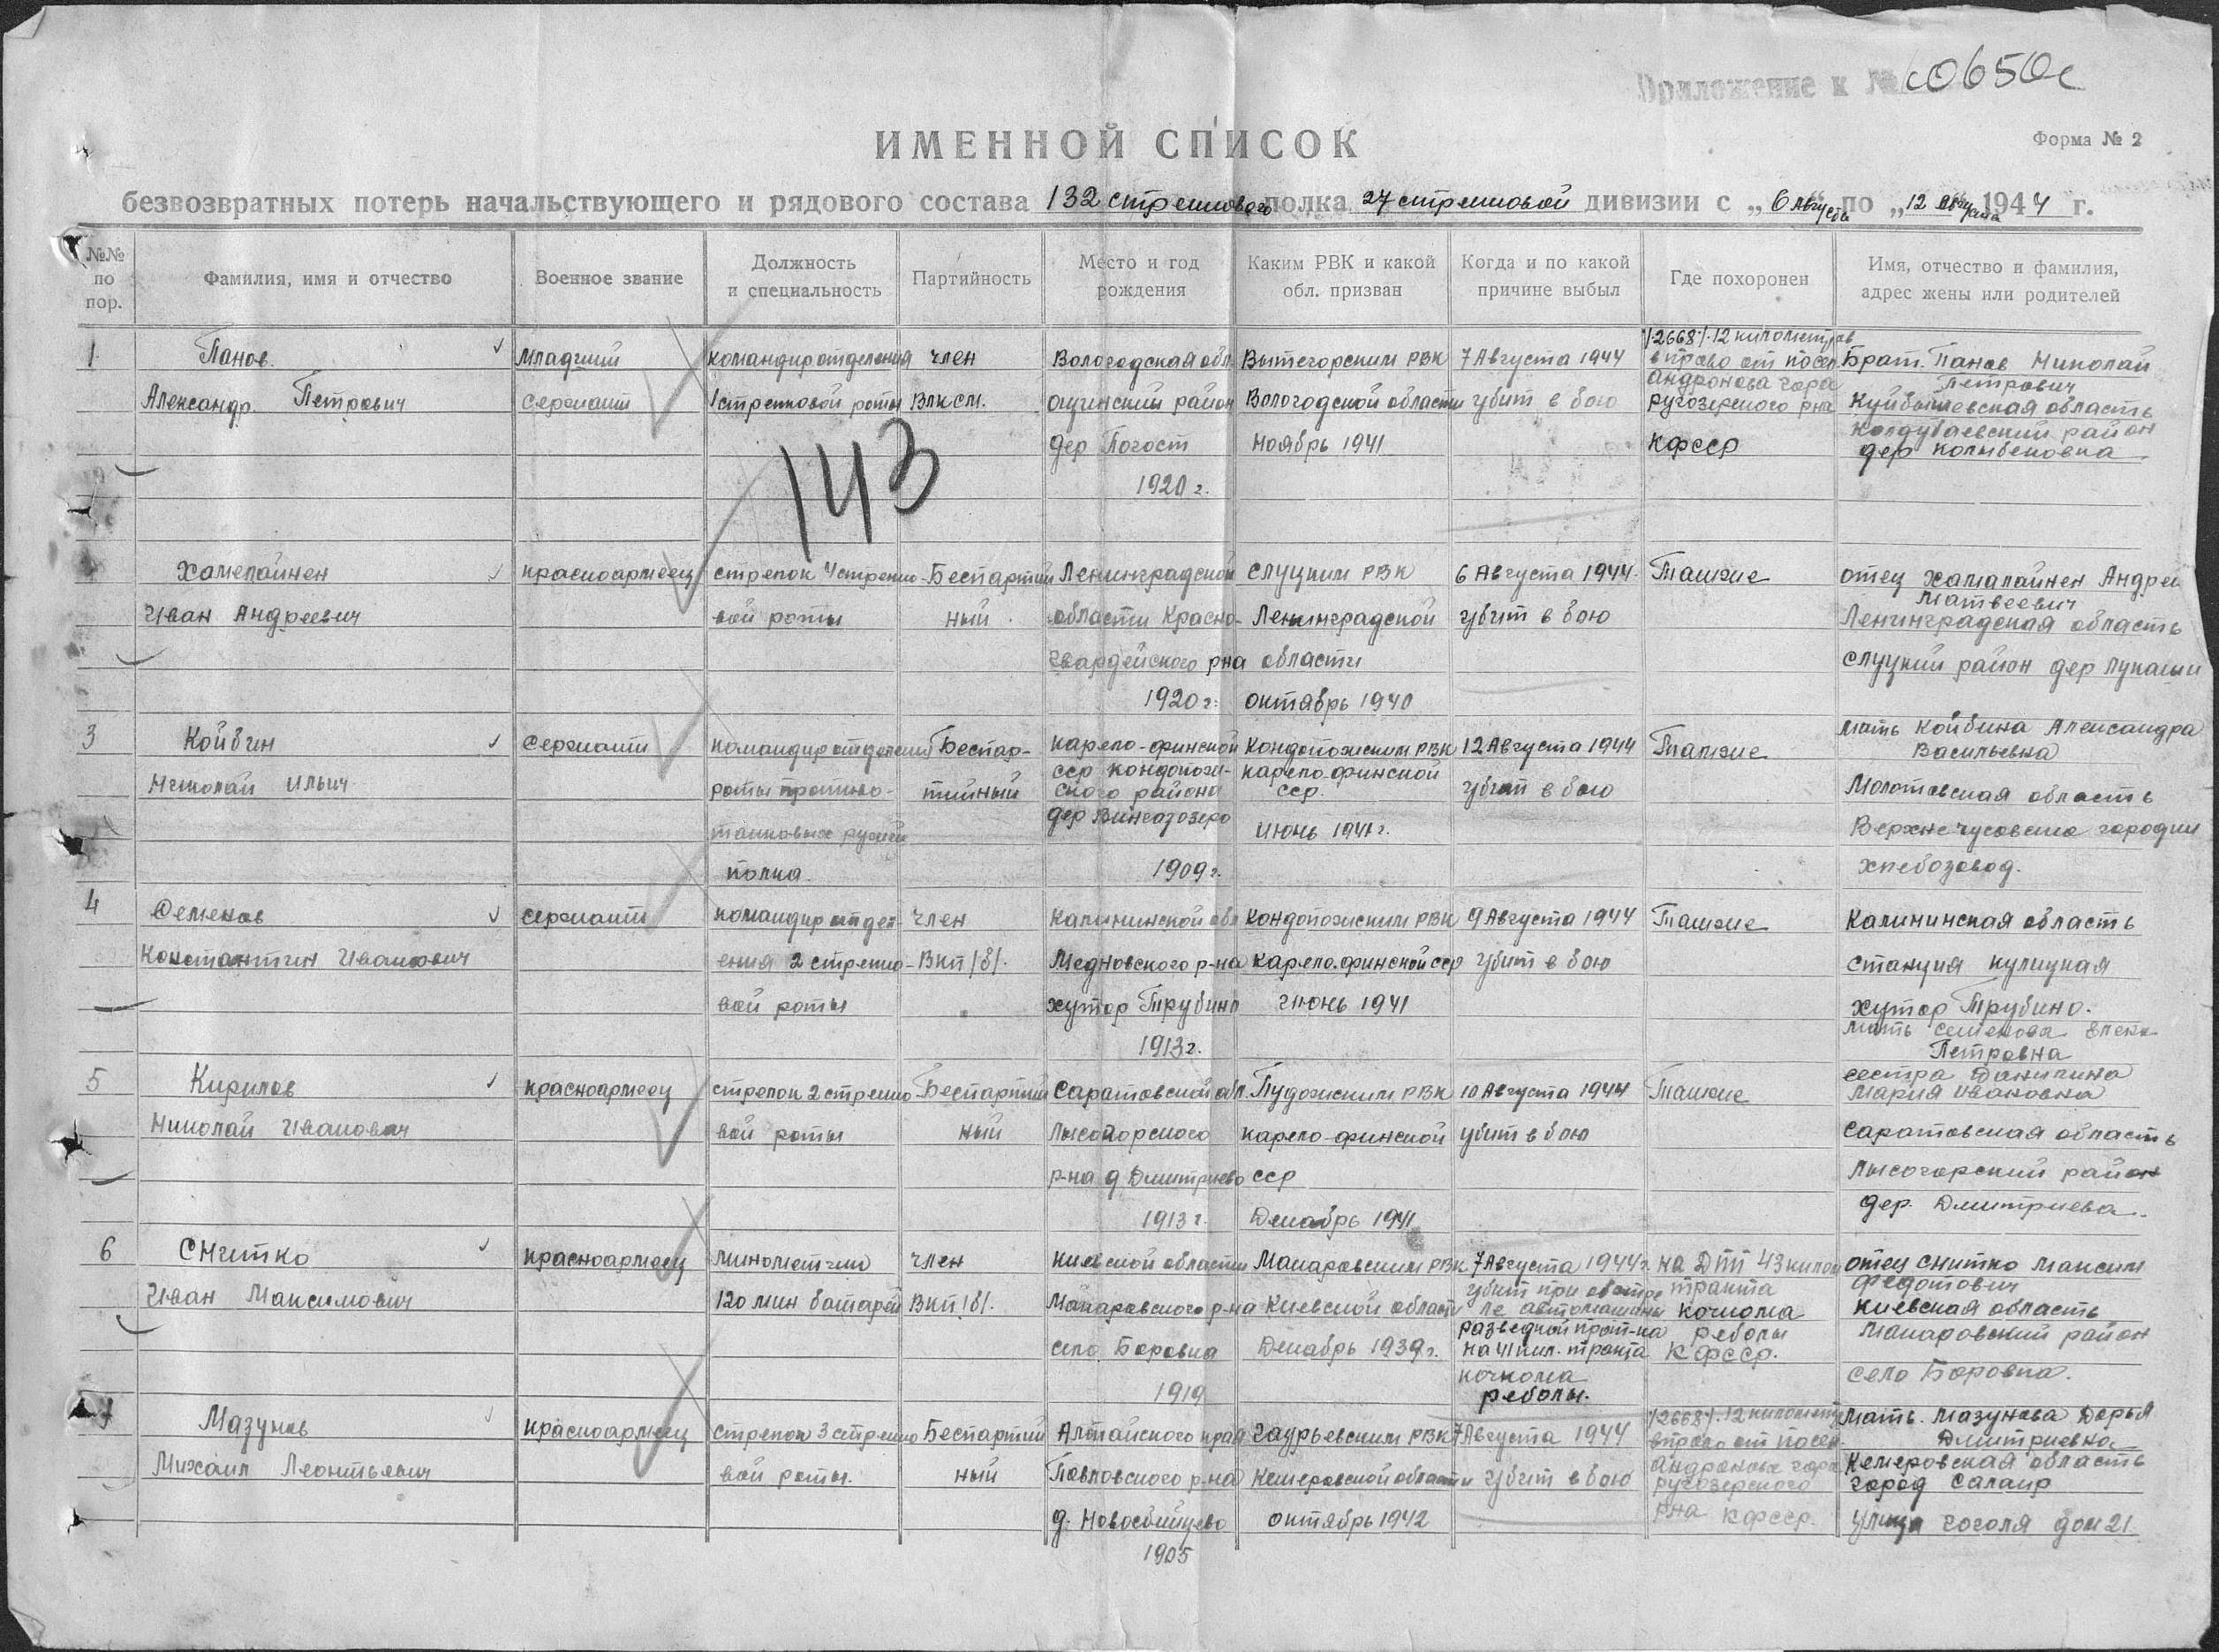 Приложение к № 0650с
ИМЕННОЙ СПИСОК
Форма № 2
безвозвратных потерь начальствующего и рядового состава 132 стрелкового полка 27 стрелковой дивизии с „6 августа" по „12 августа" 1944 г.
№№ по пор.
Фамилия, имя и отчество
Военное звание
Должность и специальность
Партийность
Место и год рождения
Каким РВК и какой обл. призван
Когда и по какой причине выбыл
Где похоронен
Имя, отчество и фамилия, адрес жены или родителей
143
1.
Панов.
Александр. Петрович
младший
сержант
командир отделения
1 стрелковой роты
член
ВЛКСМ.
Вологодская обл
район
дер Погост
1920 г.
Вытегорским РВК
Вологодской области
ноябрь 1941
7 Августа 1944
убит в бою
/-2668/. 12 километров
вправо от посел.
Андронова гора
ругозерского рна
КФССР
Брат. Панов Николай
Петрович
Куйбышевская область
район
дер
Хамелайнен
Иван Андреевич
красноармеец
стрелок 4 стрелко-
вой роты
Беспартий
ный
Ленинградской
области Красно-
гвардейского рна
1920 г.
Слуцким РВК
Ленинградской
области
октябрь 1940
6 Августа 1944.
убит в бою
Также
отец Хамалайнен Андрей
Матвеевич
Ленинградская область
Слуцкий район дер Лукаши
3
Койбин
Николай Ильич
Сержант
командир отделения
роты противо-
танковых ружей
полка.
Беспар-
тийный
Карело-финской
сср Кондопож-
ского района
дер Вингозозеро
1909 г.
Кондопожским РВК
карело-финской
сср.
Июнь 1941 г.
12 Августа 1944
убит в бою
Также
Мать Койбина Александра
Васильевна
Молотовская область
Верхнечусовские городки
хлебозавод.
4
Семенов
Константин Иванович
сержант
командир отдел-
ения 2 стрелко-
вой роты
член
ВКП/б/.
Калининской обл
Медновского р-на
хутор Трубино
1913 г.
Кондопожским РВК
Карело-финской сср
июнь 1941
9 Августа 1944
убит в бою
Также
Калининская область
станция Кулицкая
хутор Трубино.
Мать Семенова Елена
Петровна
5
Кирилов
Николай Иванович
красноармеец
стрелок 2 стрелко
вой роты
Беспартий
ный
Саратовской обл.
Лысогорского
р-на д Дмитриево
1913 г.
Пудожским РВК
карело-финской
сср
Декабрь 1941
10 Августа 1944
убит в бою
Также
сестра Данилина
Мария Ивановна
Саратовская область
Лысогорский район
дер. Дмитриева.
6
Снитко
Иван Максимович
красноармеец
минометчик
120 мин батареи
член
ВКП/б/.
Киевской области
Макаровского р-на
село Боровка
1919
Макаровским РВК
Киевской области
Декабрь 1939 г.
7 Августа 1944 г.
убит при обстре
ле автомашины
разведкой прот-ка
на 41 кил. тракта
кочкома
реболы.
на ДТП 43 килом
тракта
кочкома
реболы
КФССР.
отец Снитко Максим
Федотович
Киевская область
Макаровский район
село Боровка.
7
Мазунов
Михаил Леонтьевич
красноармеец
стрелок 3 стрелко
вой роты.
Беспартий
ный
Алтайского края
Павловского р-на
д.
1905
Гаурьевским РВК
Кемеровской области
октябрь 1942
7 Августа 1944
убит в бою
/-2668/. 12 километр
вправо от посел.
Андронова гора
ругозерского
рна КФССР.
Мать. Мазунова Дарья
Дмитриевна
Кемеровская область
город Салаир
улица Гоголя дом 21.